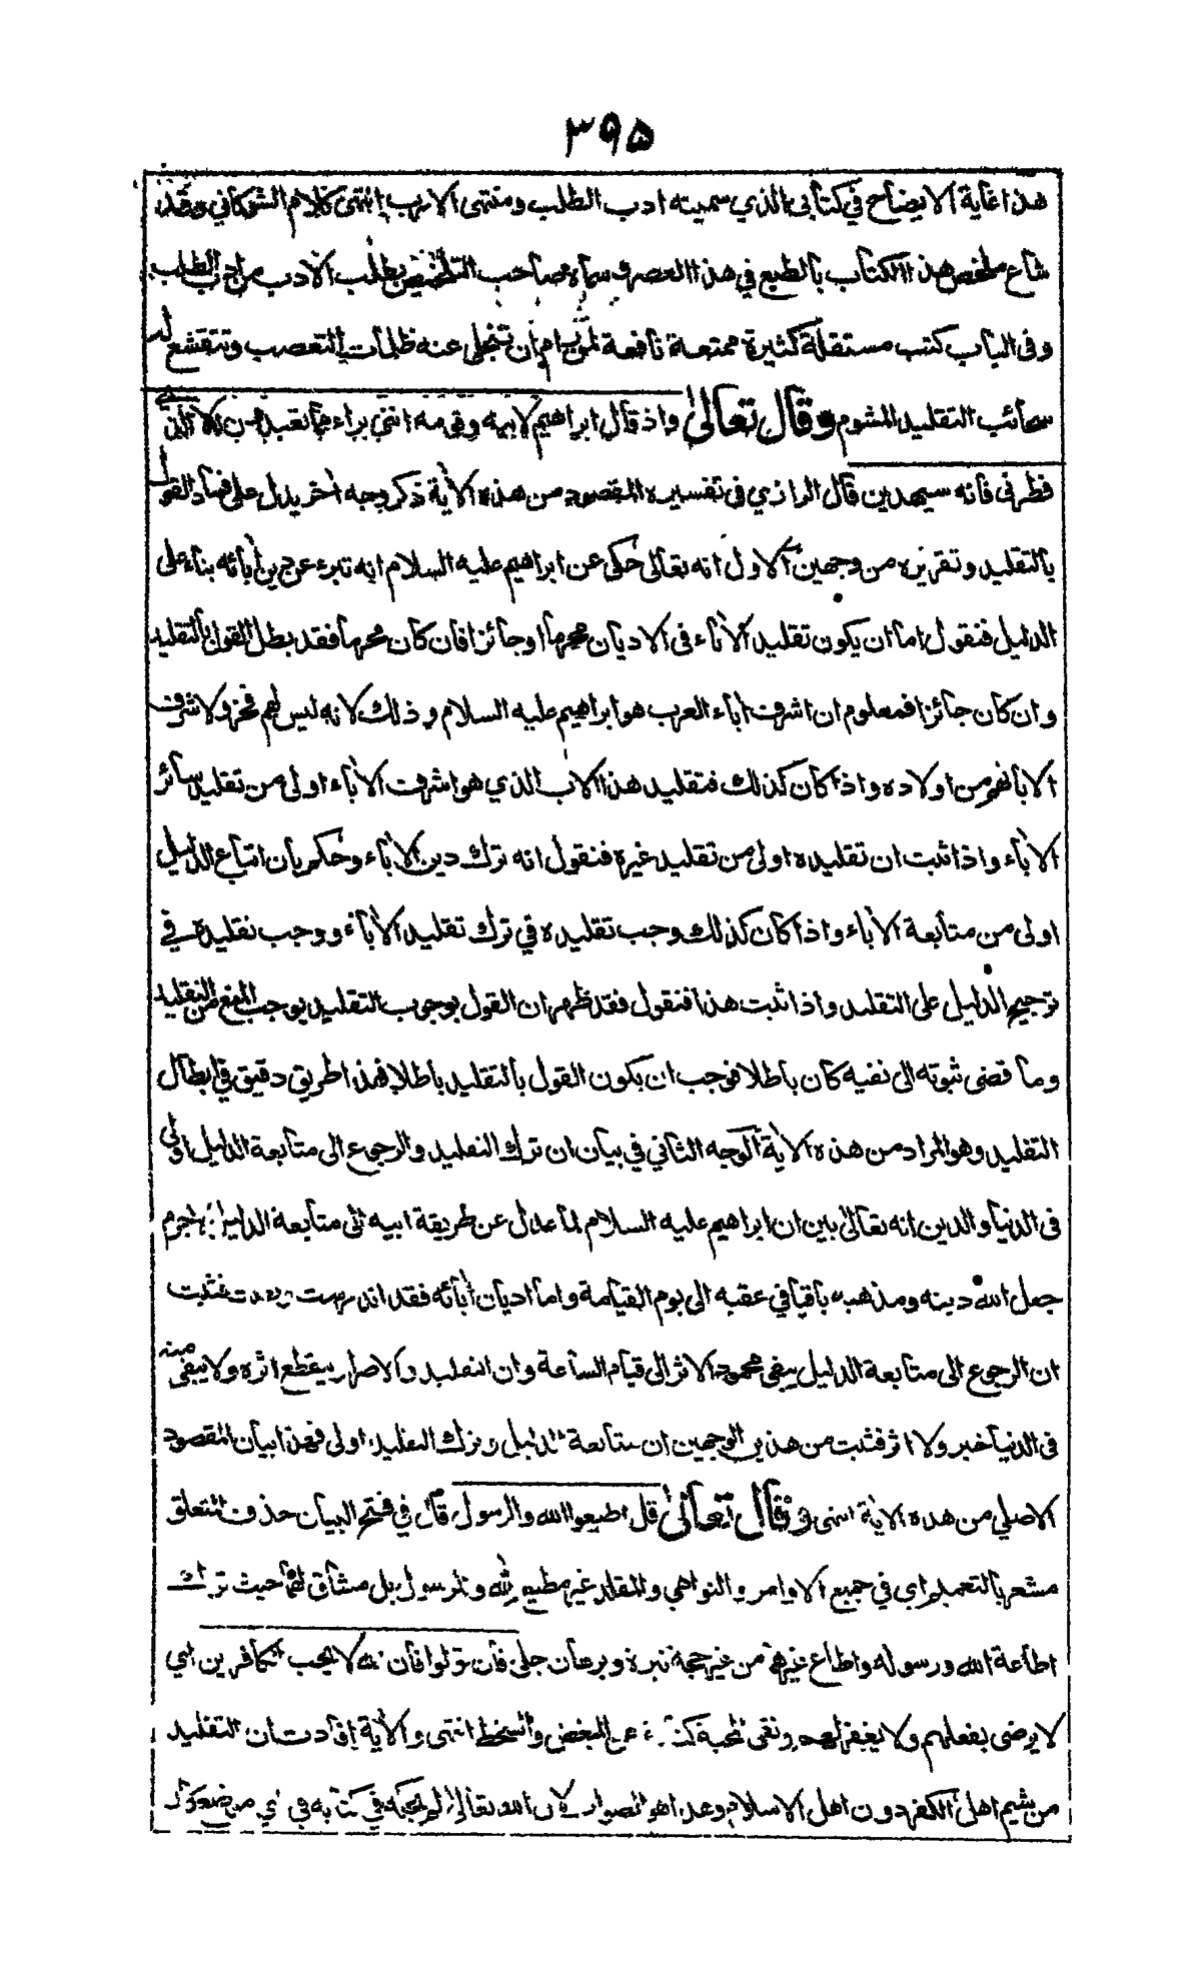 ٣٩٥
هذا غاية الايضاح في كتابى الذي سميته ادب الطلب ومنتهى الارب انتهى كلام الشوكاني وقد
شاع ملخص هذا الكتاب بالطبع في هذا العصر وسماه صاحب التلخيص بطلب الادب من ادب الطلب
وفى الباب كتب مستقلة كثيرة ممتعة نافعة لمن رام ان تنجلى عنه ظلمات التعصب وتتقشع له
سحائب التقليد المشوم وقال تعالى واذ قال ابراهيم لابيه وقومه اننى براء مما تعبدون الا الذي
فطرنى فانه سيهدين قال الرازي فى تفسيره المقصود من هذه الاية ذكر وجه اخر يدل على فساد القول
بالتقليد وتقريره من وجهين الاول انه تعالى حكى عن ابراهيم عليه السلام انه تبرء عن دين أبائه بناء على
الدليل فنقول اما ان يكون تقليد الأباء فى الاديان محرما او جائزا فان كان محرما فقد بطل القول بالتقليد
وان كان جائزا فمعلوم ان اشرف اباء العرب هو ابراهيم عليه السلام وذلك لانه ليس لهم فخر ولا شرف
الا بانهم من اولاده واذا كان كذلك فتقليد هذا الاب الذي هو اشرف الأباء اولى من تقليد سائر
الأباء واذا ثبت ان تقليده اولى من تقليد غيره فنقول انه ترك دين الأباء وحكم بان اتباع الدليل
اولى من متابعة الأباء واذا كان كذلك وجب تقليده في ترك تقليد الأباء ووجب تقليده في
ترجيح الدليل على التقليد واذا ثبت هذا فنقول فقد ظهر ان القول بوجوب التقليد يوجب المنع من التقليد
وما قضى ثبوته الى نفيه كان باطلا فوجب ان يكون القول بالتقليد باطلا فهذا طريق دقيق في ابطال
التقليد وهو المراد من هذه الاية الوجه الثاني في بيان ان ترك التقليد والرجوع الى متابعة الدليل اولى
فى الدنيا والدين انه تعالى بين ان ابراهيم عليه السلام لما عدل عن طريقة ابيه الى متابعة الدليل لاجرم
جعل الله دينه ومذهبه باقيا في عقبه الى يوم القيامة واما اديان أبائه فقد اندرست فثبت
ان الرجوع الى متابعة الدليل يبقى محمود الاثر الى قيام الساعة وان التقليد والاصرار ينقطع اثره ولا يبقى منه
فى الدنيا خبر ولا اثر فثبت من هذين الوجهين ان متابعة الدليل وترك التقليد اولى فهذا بيان المقصود
الاصلي من هذه الاية انتهى وقال تعالى قل اطيعوا الله والرسول قال في فتح البيان حذف المتعلق
مشعر بالتعميم اى في جميع الاوامر والنواهي والمقلد غير مطيع لله والرسول بل مشاق لهما حيث ترك
اطاعة الله ورسوله واطاع غيرهما من غير حجة نيرة وبرهان جلى فان تولوا فان الله لا يحب الكافرين اي
لا يرضى بفعلهم ولا يغفر لهم ونفى المحبة عن البغض والسخط انتهى والأية افادت ان التقليد
من شيم اهل الكفر دون اهل الاسلام وهذا هو الصواب لان الله تعالى لم يحكه في كتابه في اي موضع